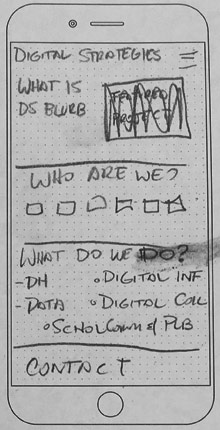 DIGITAL STRATEGIES
WHAT IS
DS BLURB
WHO ARE WE?
WHAT DO WE DO?
-DH
DIGITAL INF
-DATA
DIGITAL COLL
SCHOLCOMM & PUB
CONTACT